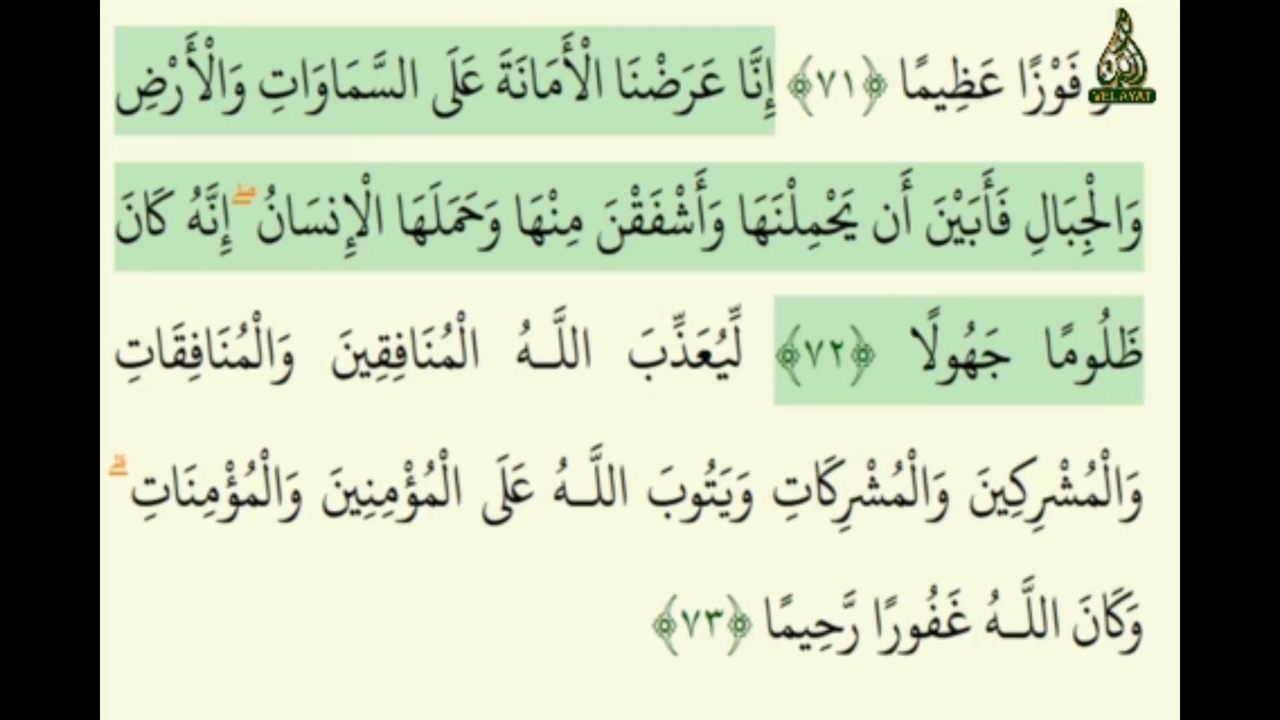 فَوْزًا عَظِيمًا ﴿٧١﴾ إِنَّا عَرَضْنَا الْأَمَانَةَ عَلَى السَّمَاوَاتِ وَالْأَرْضِ
وَالْجِبَالِ فَأَبَيْنَ أَن يَحْمِلْنَهَا وَأَشْفَقْنَ مِنْهَا وَحَمَلَهَا الْإِنسَانُ ۖ إِنَّهُ كَانَ
ظَلُومًا جَهُولًا ﴿٧٢﴾ لِّيُعَذِّبَ اللَّـهُ الْمُنَافِقِينَ وَالْمُنَافِقَاتِ
وَالْمُشْرِكِينَ وَالْمُشْرِكَاتِ وَيَتُوبَ اللَّـهُ عَلَى الْمُؤْمِنِينَ وَالْمُؤْمِنَاتِ ۗ
وَكَانَ اللَّـهُ غَفُورًا رَّحِيمًا ﴿٧٣﴾
VELAYAT